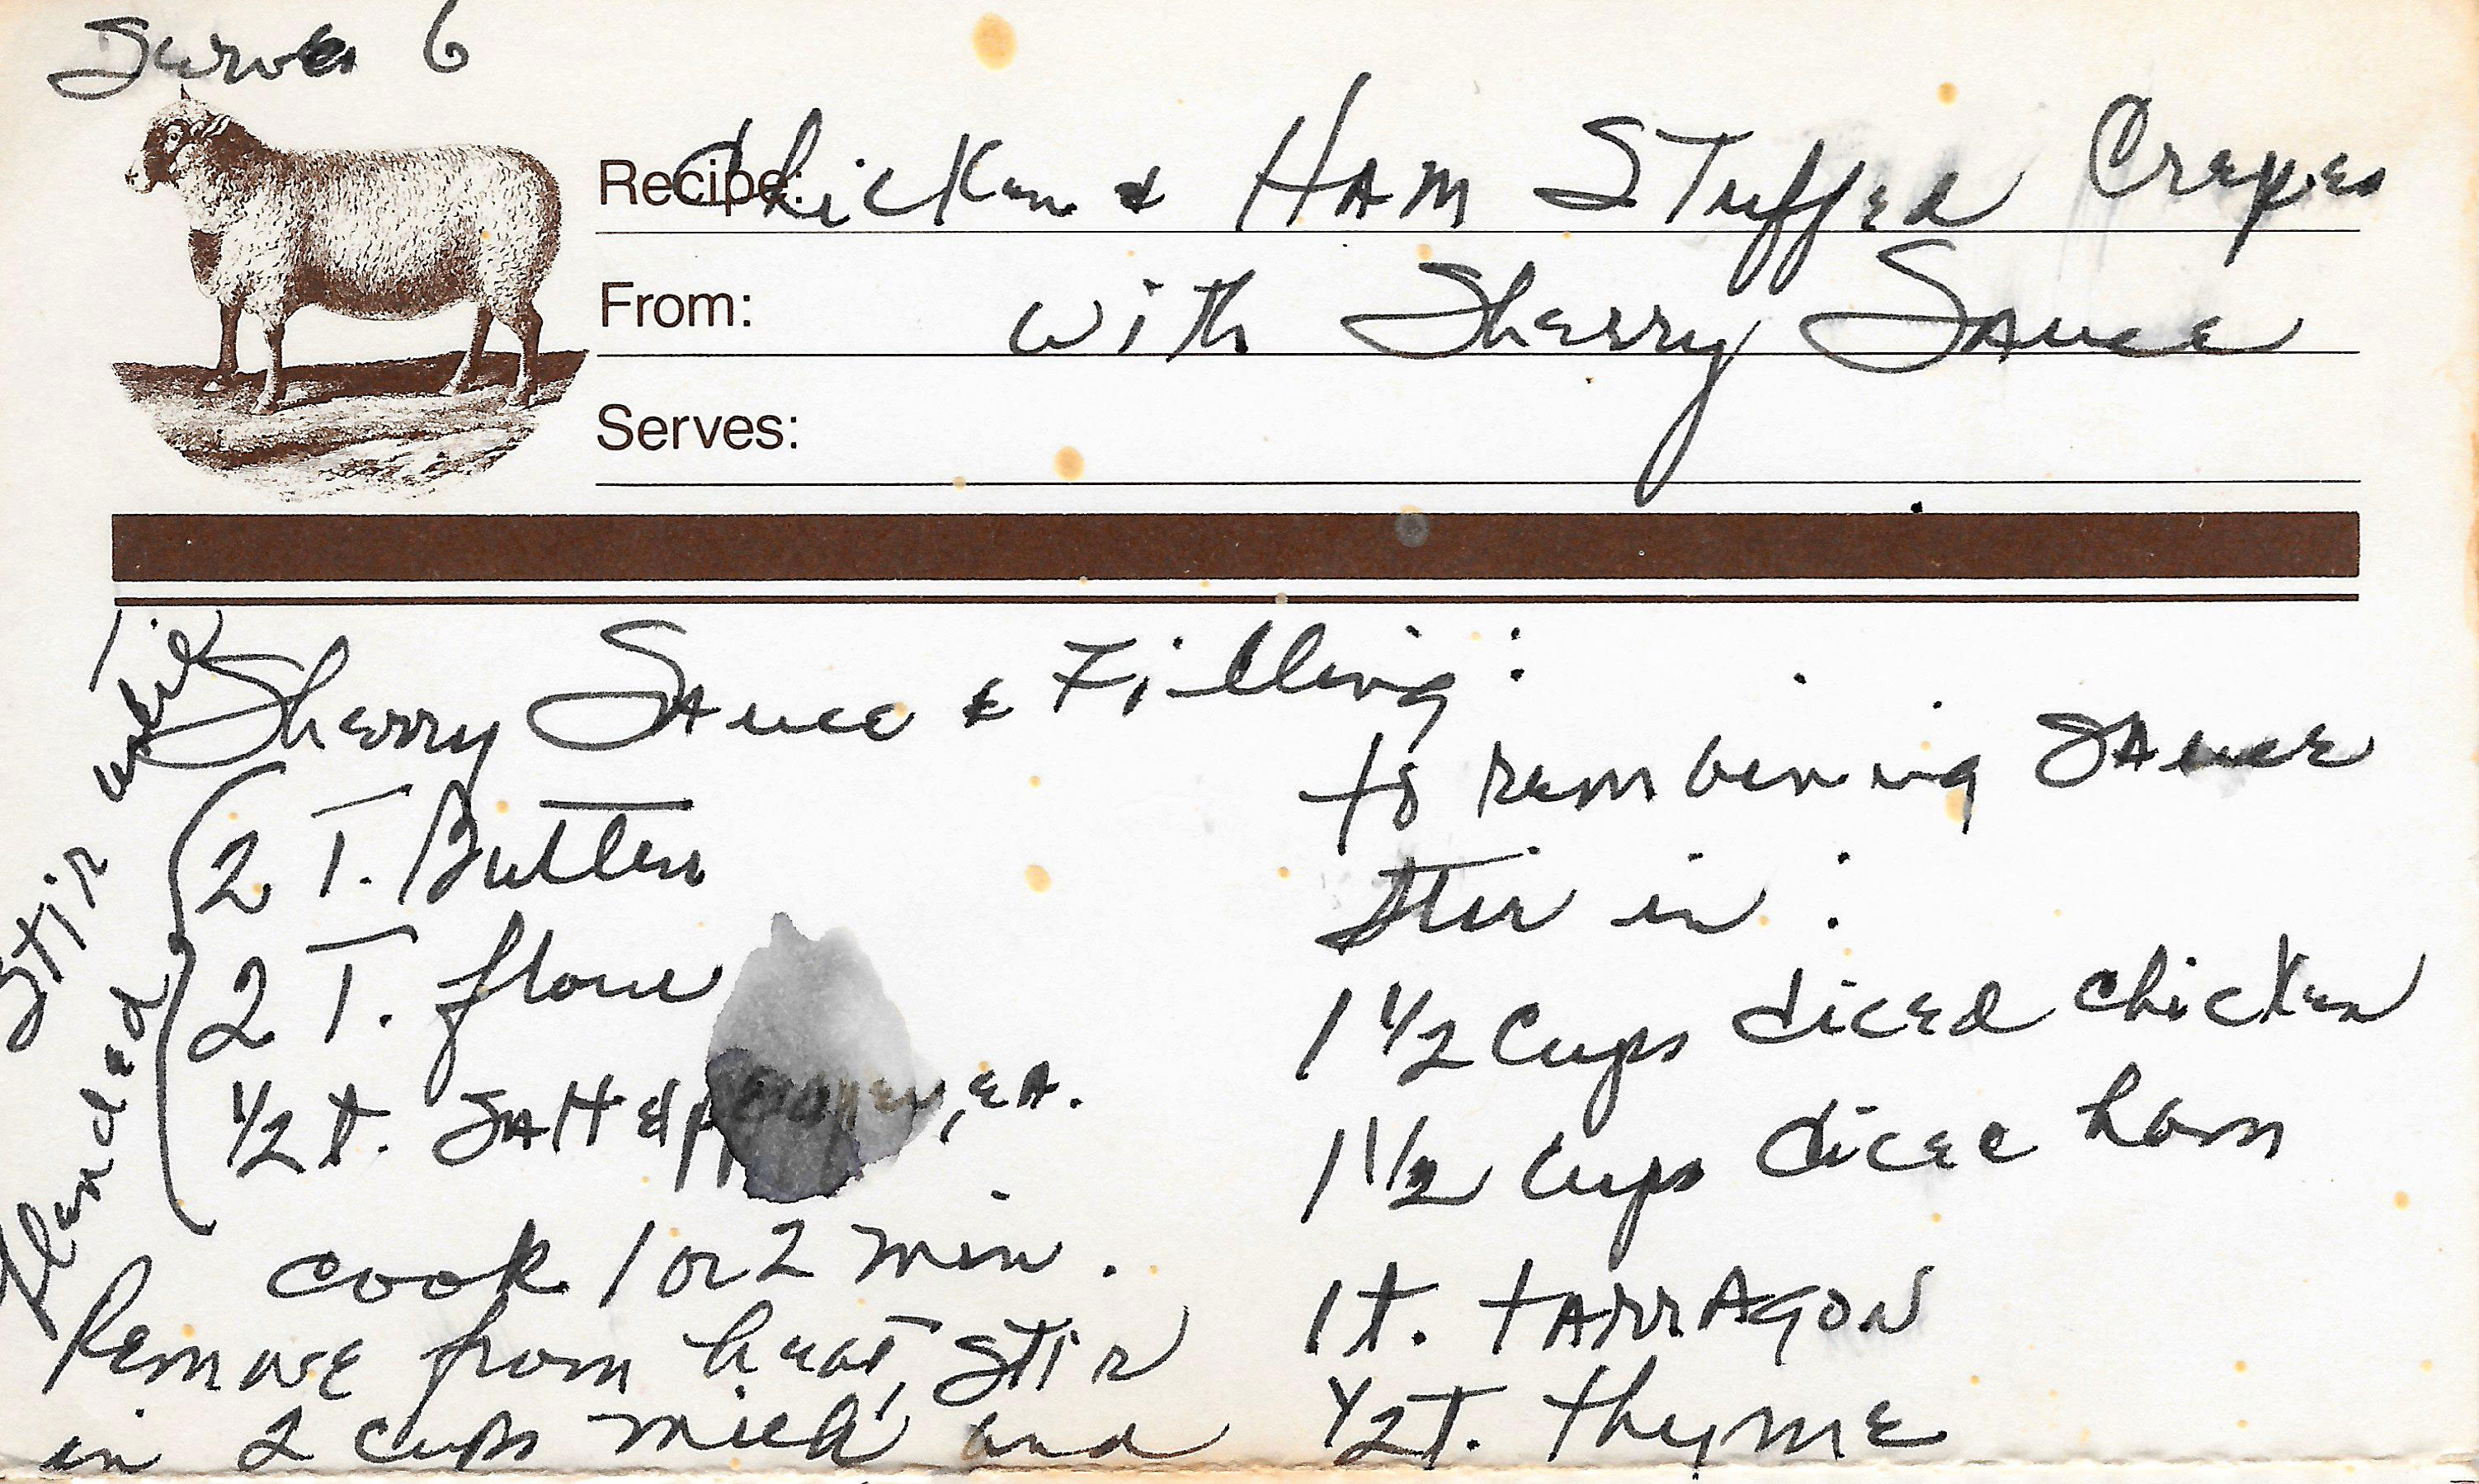 Serves 6
Recipe: Chicken & HAM STuffed Crepes
From: with Sherry SAuce
Serves:
Sherry SAuce & Filling:
Stir until
blended
2 T. Butter
2 T. flour
1/2 t. SAlt & pepper, eA.
cook 1 or 2 min.
Remove from heat, STir
in 2 cups milk and
to remaining SAuce
Stir in:
1 1/2 Cups diced chicken
1 1/2 Cups diced ham
1 t. tARRAgon
1/2 T. thyme